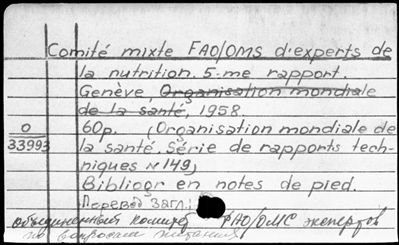 Comité mixte FAO/OMS d'experts de
la nutrition. 5-me rapport.
Genève, Organisation mondiale
de la santé, 1958
0 60p. (Organisation mondiale de
33993 la santé. Série de rapports tech-
niques N 149)
Bibliogr en notes de pied.
Перевод Загл.:
объединенный комитет ФАО/ОМС экспертов
по вопросам питания